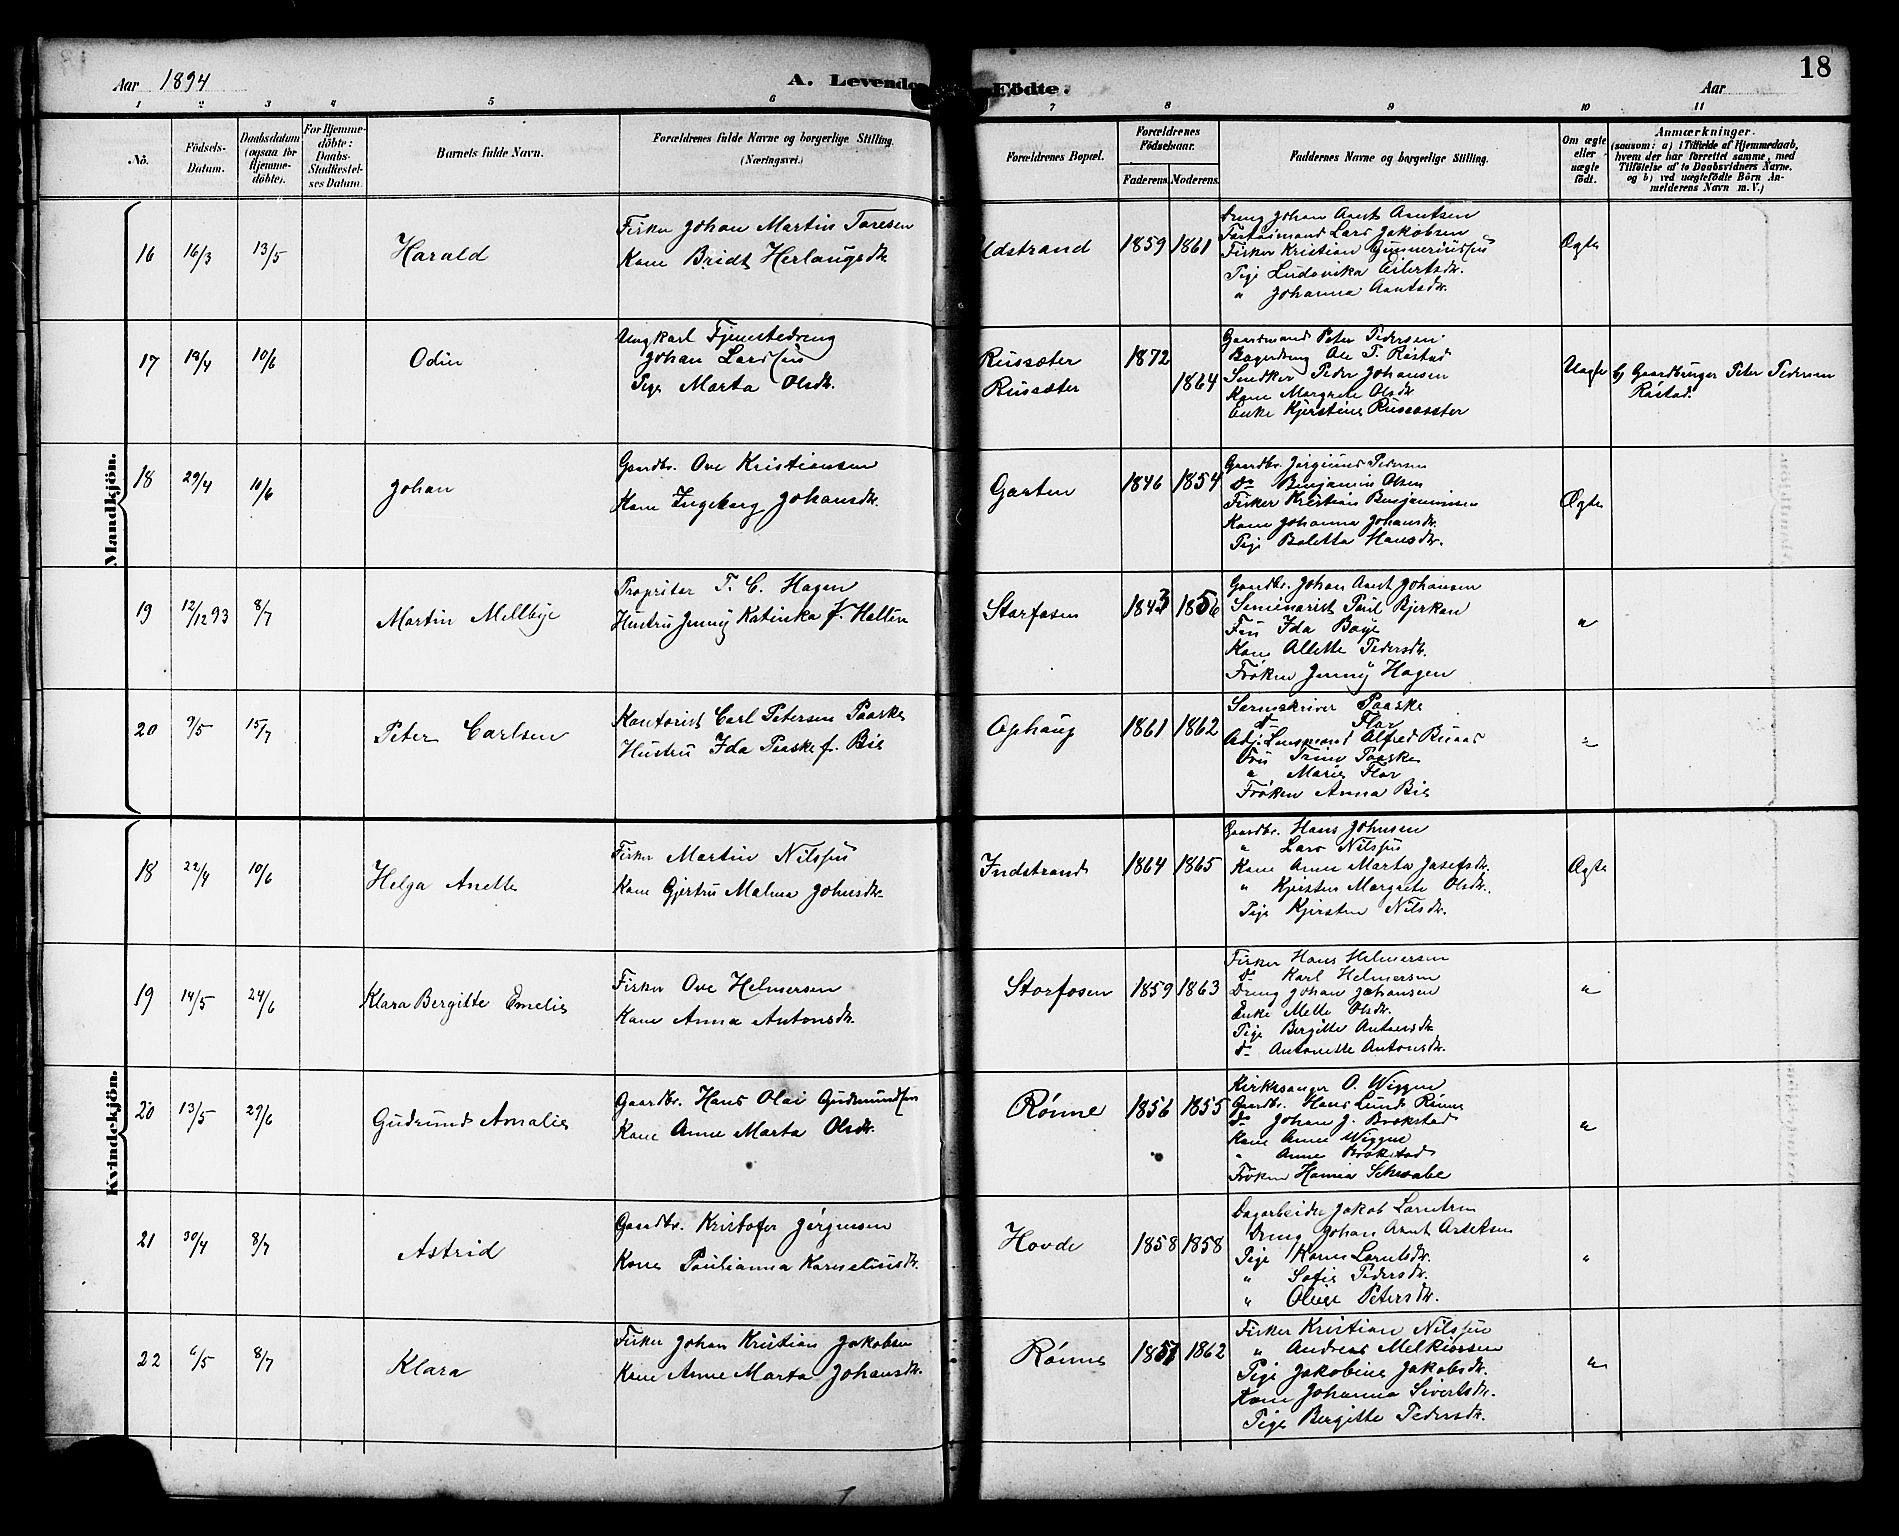 Aar 1894
A. Levende Födte.
Aar
18
1 2 3 4 5 6 7 8 9 10 11
No.
Födsels-Datum.
Daabsdatum (ogsaa for Hjemme-döbte).
For Hjemme-döbte: Daabs-Stadfæstel-ses Datum.
Barnets fulde Navn.
Forældrenes fulde Navne og borgerlige Stilling. (Næringsvei.)
Forældrenes Bopæl.
Forældrenes Födselsaar.
Faderens. Moderens.
Faddernes Navne og borgerlige Stilling.
Om ægte eller uægte födt.
Anmærkninger.
(saasom: a) i Tilfælde af Hjemmedaab, hvem der har forrettet samme, med Tilföielse af to Daabsvidners Navne, og b) ved uægtefödte Börn An-melderens Navn m. V.)
Mandkjön.
16 16/3 13/5 Harald
Fisker Johan Martin Taresen
Kone Bridt Herlaugsdtr
Udstrand 1859 1861
Dreng Johan Arnt Arntsen
Lars Jakobsen
Fisker Kristian Gunneriussen
Pige Ludovika Eilertsdtr.
" Johanna Arntsdtr.
Ægte
17 19/4 10/6 Odin
Ungkarl Tjenestedreng
Johan Larssen
Pige Marta Olsdtr.
Russæter 1872
Russæter 1864
Gaardmand Peter Pedersen
Ole T. Røstad
Snedker Peder Johansen
Kone Margrete Olsdtr
Enke Kjerstine Russæter
Uægte
b) Gaardbruger Peter Pedersen
Røstad.
18 29/4 10/6 Johan
Gaardbr. Ove Kristiansen
Kone Ingeborg Johansdtr.
Garten 1846 1854
Gaardbr. Jørginus Pedersen
Do Benjamin Olsen
Fisker Kristian Benjaminsen
Kone Johanna Johansdtr.
Pige Baletta Hansdtr.
Ægte
19 12/12 93 8/7 Martin Mellbye
Propritær T. C. Hagen
Hustru Jenny Katinka f. Holten
Storfosen 1843 1856
Gaardbr. Johan Arnt Johansen
Seminarist Paul Bjerkan
Fru Ida Boye
Kone Allette Pedersdtr.
Frøken Jenny Hagen
"
20 9/5 15/7 Peter Carlsen
Kontorist Carl Petersen Paaske
Hustru Ida Paaske f. Bie
Ophaug 1861 1862
Sorenskriver Paaske
do Flor
Adj. Lensmand Alfred Buaas
Fru Trine Paaske
" Marie Flor
Frøken Anna Bie
"
Kvindekjön.
18 22/4 10/6 Helga Anette
Fisker Martin Nilssen
Kone Gjertru Malena Johnsdtr
Indstrand 1864 1865
Gaardbr. Hans Johnsen
" Lars Nilssen
Kone Anne Marta Josefsdtr.
" Kjersten Margrete Olsdtr.
Pige Kjersten Nilsdtr.
Ægte
19 14/5 24/6 Klara Bergitte Emelie
Fisker Ove Helmersen
Kone Anna Antonsdtr.
Storfosen 1859 1863
Fisker Hans Helmersen
Do Karl Helmersen
Dreng Johan Johansen
Enke Mette Olsdtr.
Pige Bergitte Antonsdtr
do Antonette Antonsdtr.
"
20 13/5 29/6 Gudrund Amalie
Gaardbr. Hans Olai Gudmundsen
Kone Anne Marta Olsdtr.
Rønne 1856 1855
Kirkesanger O. Wiggen
Gaardbr. Hans Lund Rønne
do Johan J. Brækstad
Kone Anne Wiggen
" Anne Brækstad
Frøken Hanna Schwabe
"
21 30/4 8/7 Astrid
Gaardbr. Kristofer Jørgensen
Kone Paulianna Korneliusdtr.
Hovde 1858 1858
Dagarbeider Jakob Larntsen
Dreng Johan Arnt
Pige
" Sofie Pedersdtr.
" Oline Petersdtr.
"
22 6/5 8/7 Klara
Fisker Johan Kristian Jakobsen
Kone Anne Marta Johansdtr.
Rønne 1857 1862
Fisker Kristian Nilssen
" Andreas Melkiorsen
Pige Jakobine Jakobsdtr.
Kone Johanna Sivertsdtr.
Pige Bergitte Pedersdtr.
"